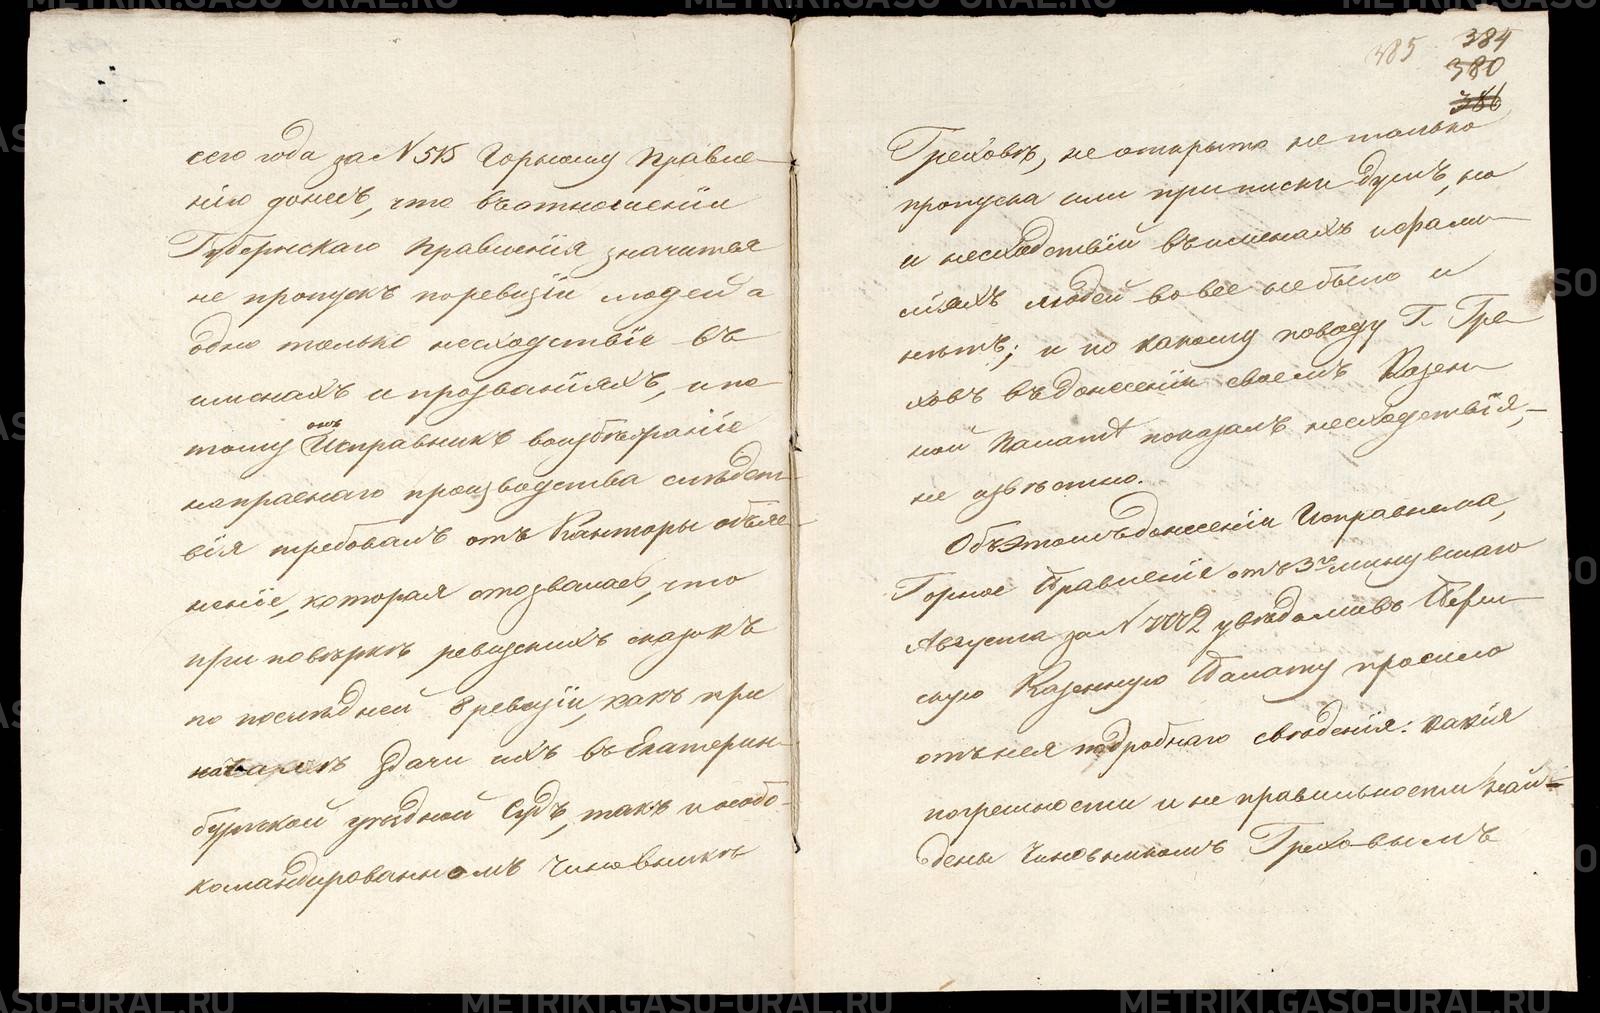 сего года за N 515 Горному Правле-
нію донесъ, что въ отношеніи
Губернскаго Правленія значится
не пропускъ по ревизіи людей а
одно только несходствіе въ
именахъ и прозваніяхъ, и по
тому онъ Исправникъ во избѣжаніе
напраснаго производства слѣдст-
вія требовалъ отъ Канторы объяс-
неніе, которая отозвалась, что
при повѣркѣ ревизскихъ сказокъ
по послѣдней 8 ревизіи, какъ при
здачи ихъ въ Екатерин-
бургской уѣздной Судъ, такъ и особо-
командированномъ Чиновникѣ
385 384
380
386
Греховѣ, не открыто не только
пропуска или приписки душъ, но
и несходствій въ именахъ и фами-
ліяхъ людей вовсе не было и
нѣтъ; и по какому поводу Г. Гре-
ховъ въ донесеніи своемъ Казен-
ной Палатѣ показалъ несходствія,-
не извѣстно.
Объ этомъ донесеніи Исправника,
Горное Правленіе отъ 3го минувшаго
Августа за N увѣдомивъ Перм-
скую Казенную Палату просило
отъ нея подробнаго свѣденія: какія
погрешности и не правильности най-
дены Чиновникомъ Греховымъ
METRIKI.GASO-URAL.RU